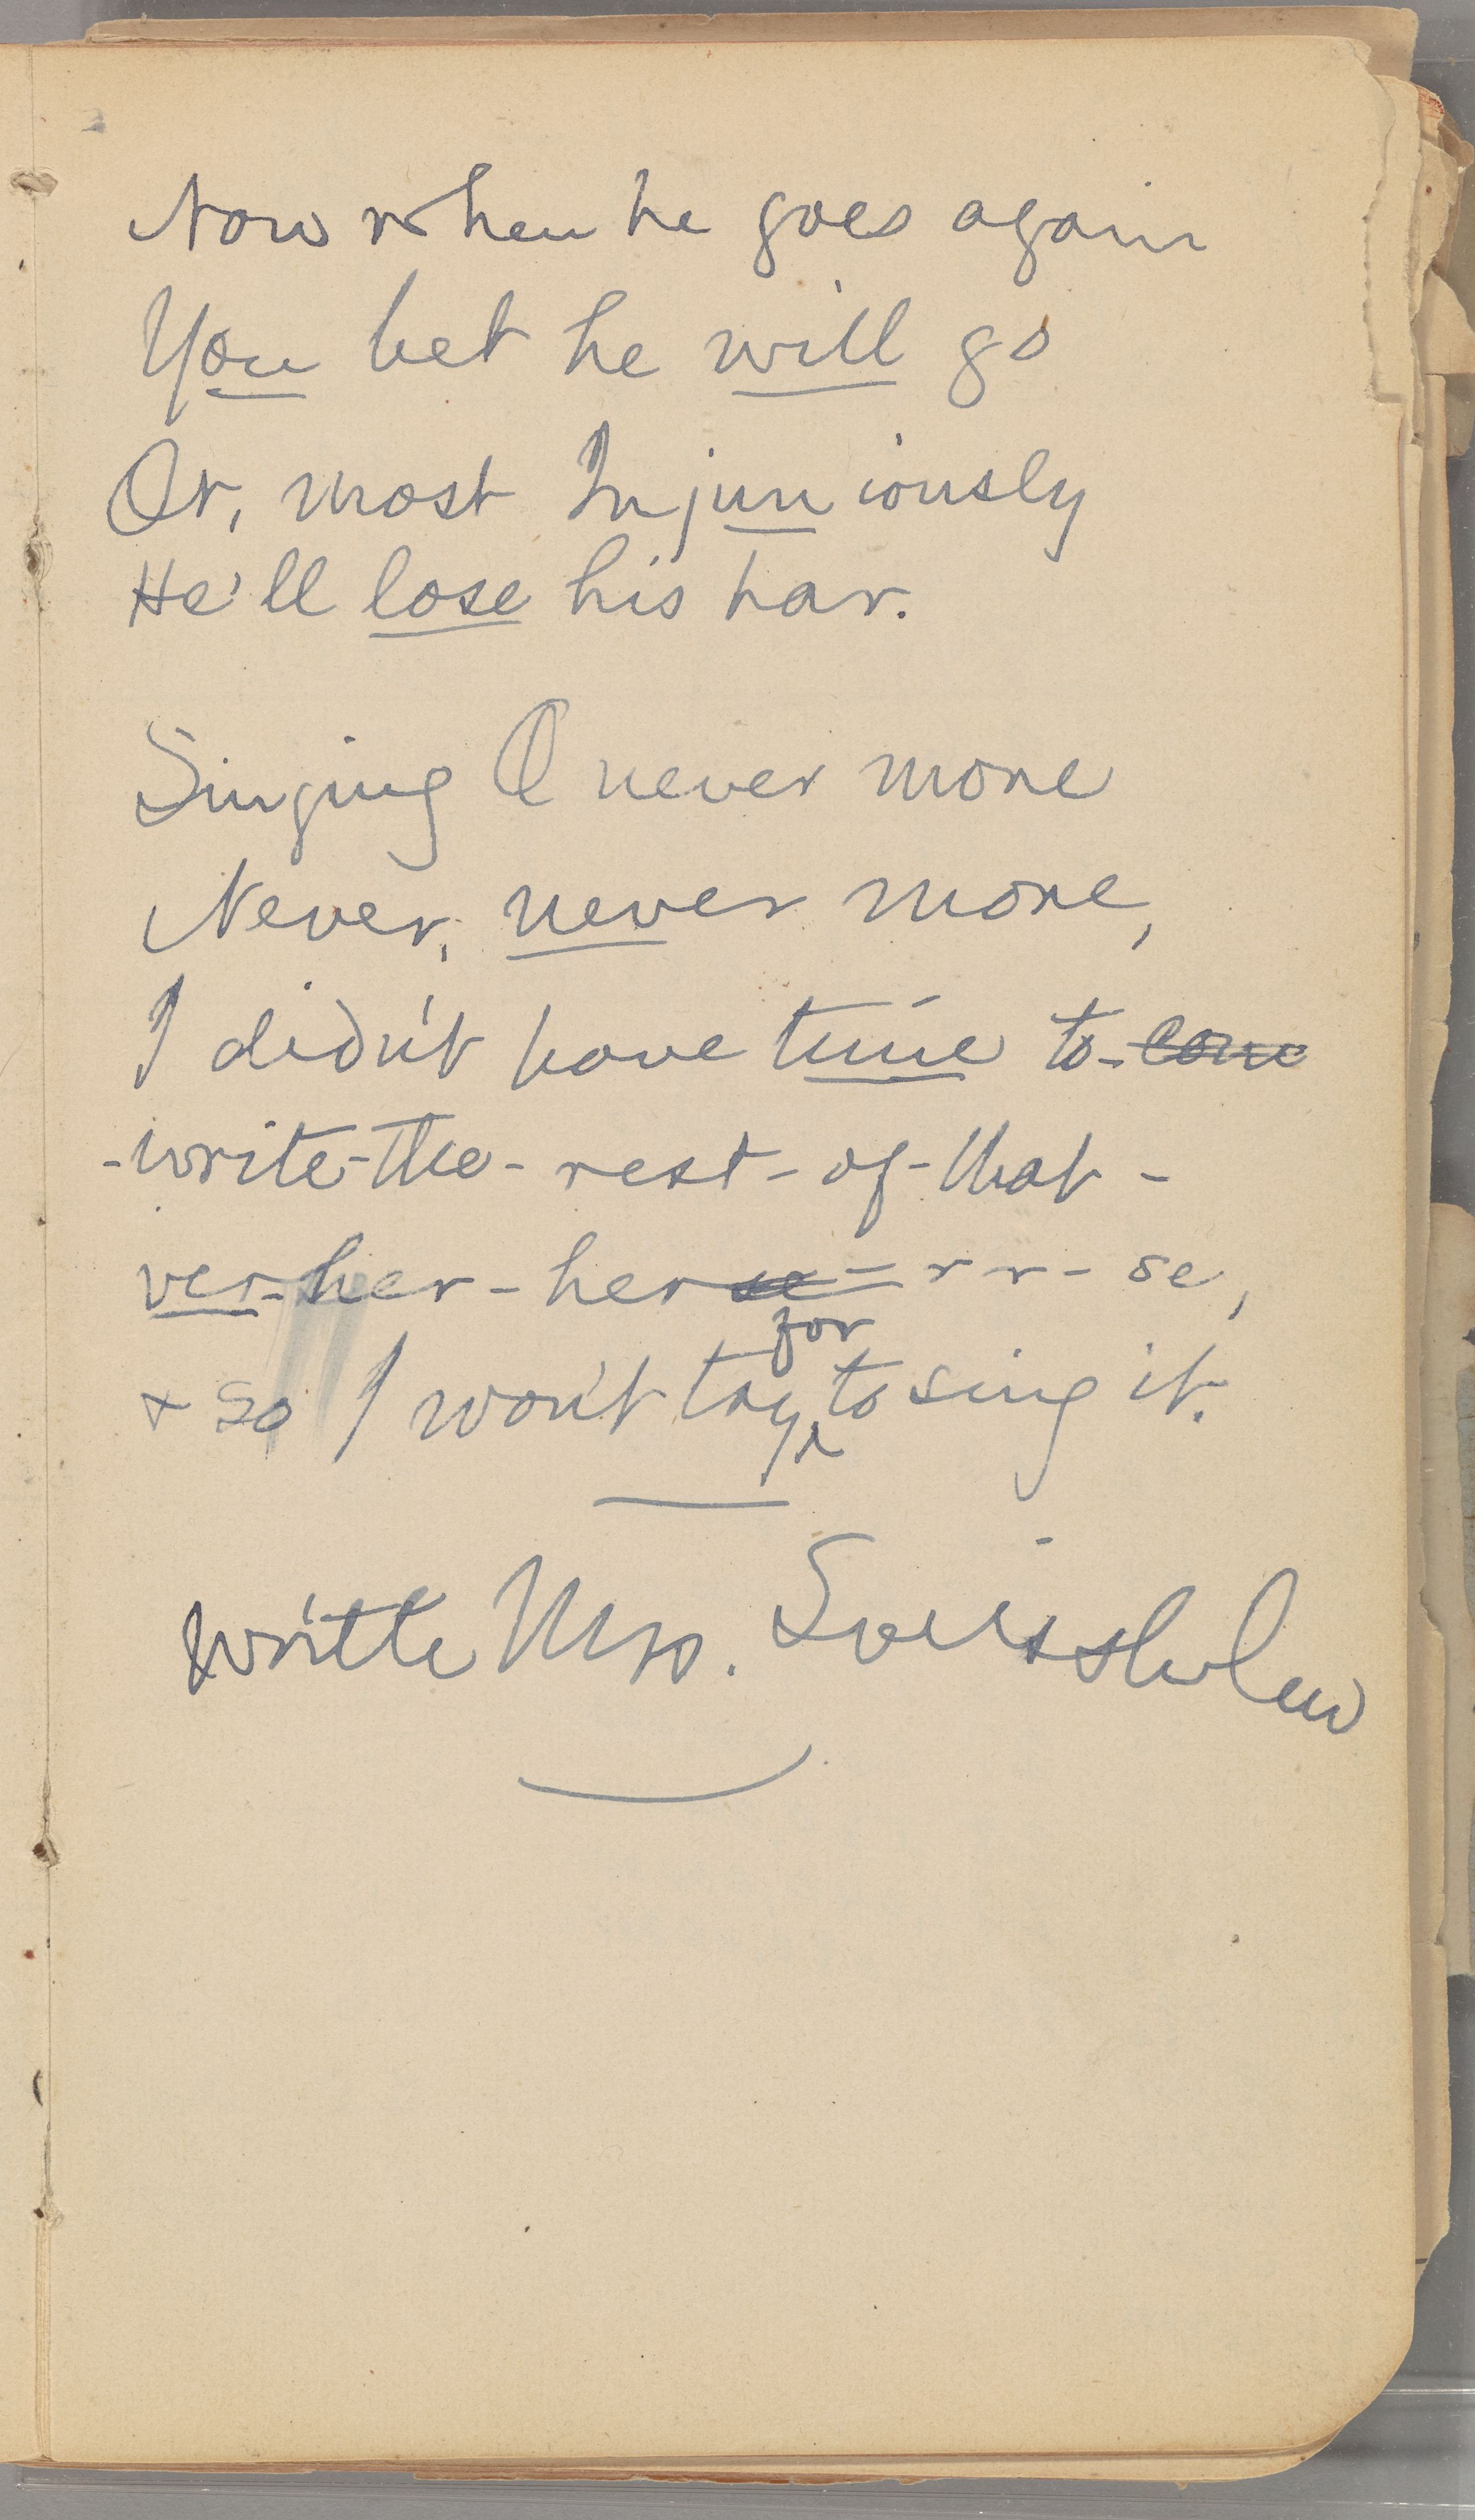 Now when he goes again
You bet he will go
Or, most Injuniously
He'll lose his har.
Singing O never more
Never, never more,
I didn't have time to-come
-write-the-rest-of-that-
ver-her-herse-r-r-se,
for
& so I won't try, to sing it.
Write Mrs. Swisshelm